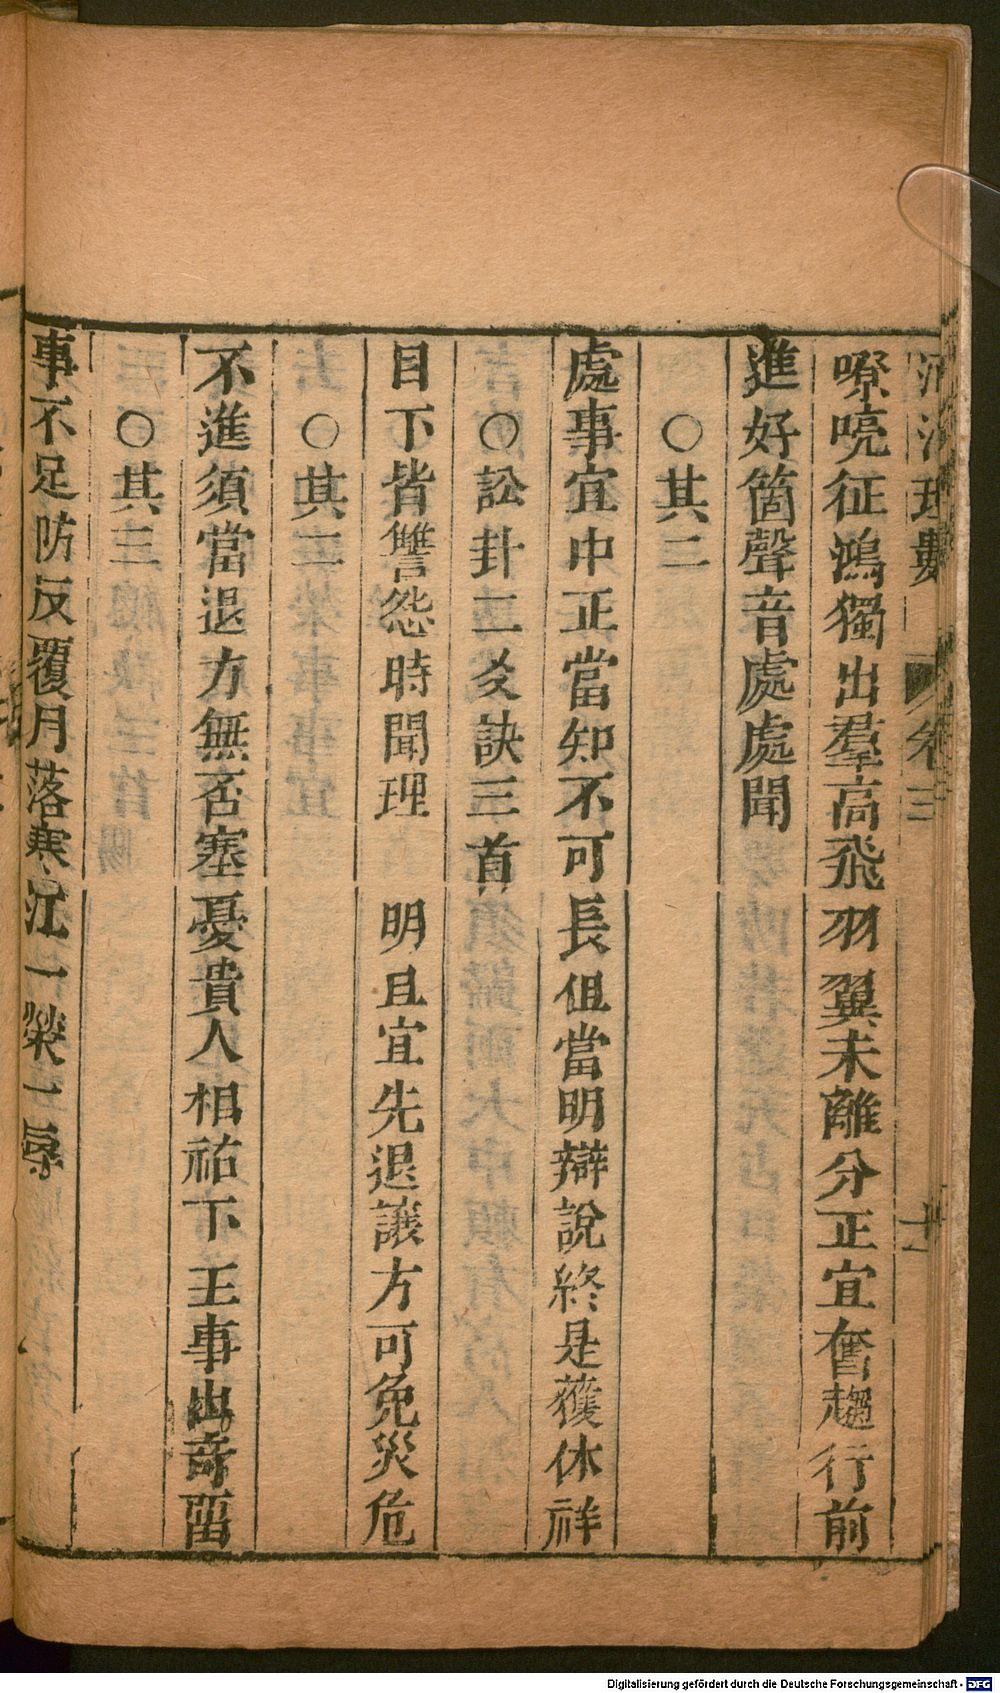 河洛理數 卷三 十一
嘹喨征鴻獨出羣高飛羽翼未離分正宜奮趨行前
進好箇聲音處處聞
○其二
處事宜中正當知不可長但當明辯說終是獲休祥
○訟卦二爻訣三首
目下皆讐怨時聞理 明且宜先退讓方可免災危
○其二
不進須當退方無否塞憂貴人相祐下王事出奇畱
○其三
事不足防反覆月落寒江一榮一辱
Digitalisierung gefördert durch die Deutsche Forschungsgemeinschaft - DFG